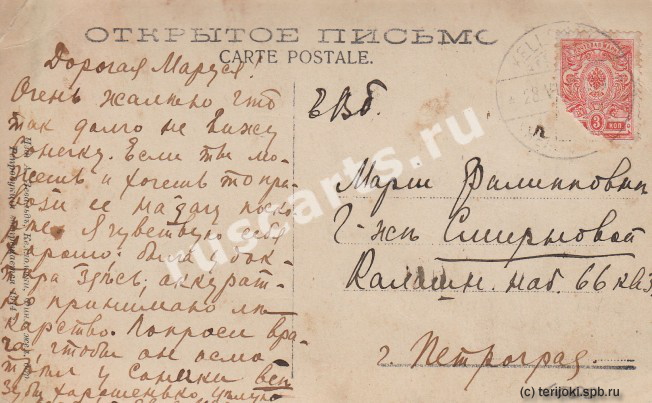 ОТКРЫТОЕ ПИСЬМО
CARTE POSTALE.
Дорогая Маруся!
Очень жалько что
так долго не вижу
Сонечку. Если ты мо-
жешь и хочешь то при-
вози ее на дачу
Я чувствую себя
хорошо: была у док-
тора здесь, аккурат-
но принимаю ле-
карство. Попроси вра-
ча, чтобы он осмо
трел у Сонечки
зубы хорошенько
ЕВб.
Марии Филипповны
Г-жи Смирновой
Калашн. наб. 66 кв
г. Петроград
3 КОП
ruskarts.ru
(c) terijoki.spb.ru